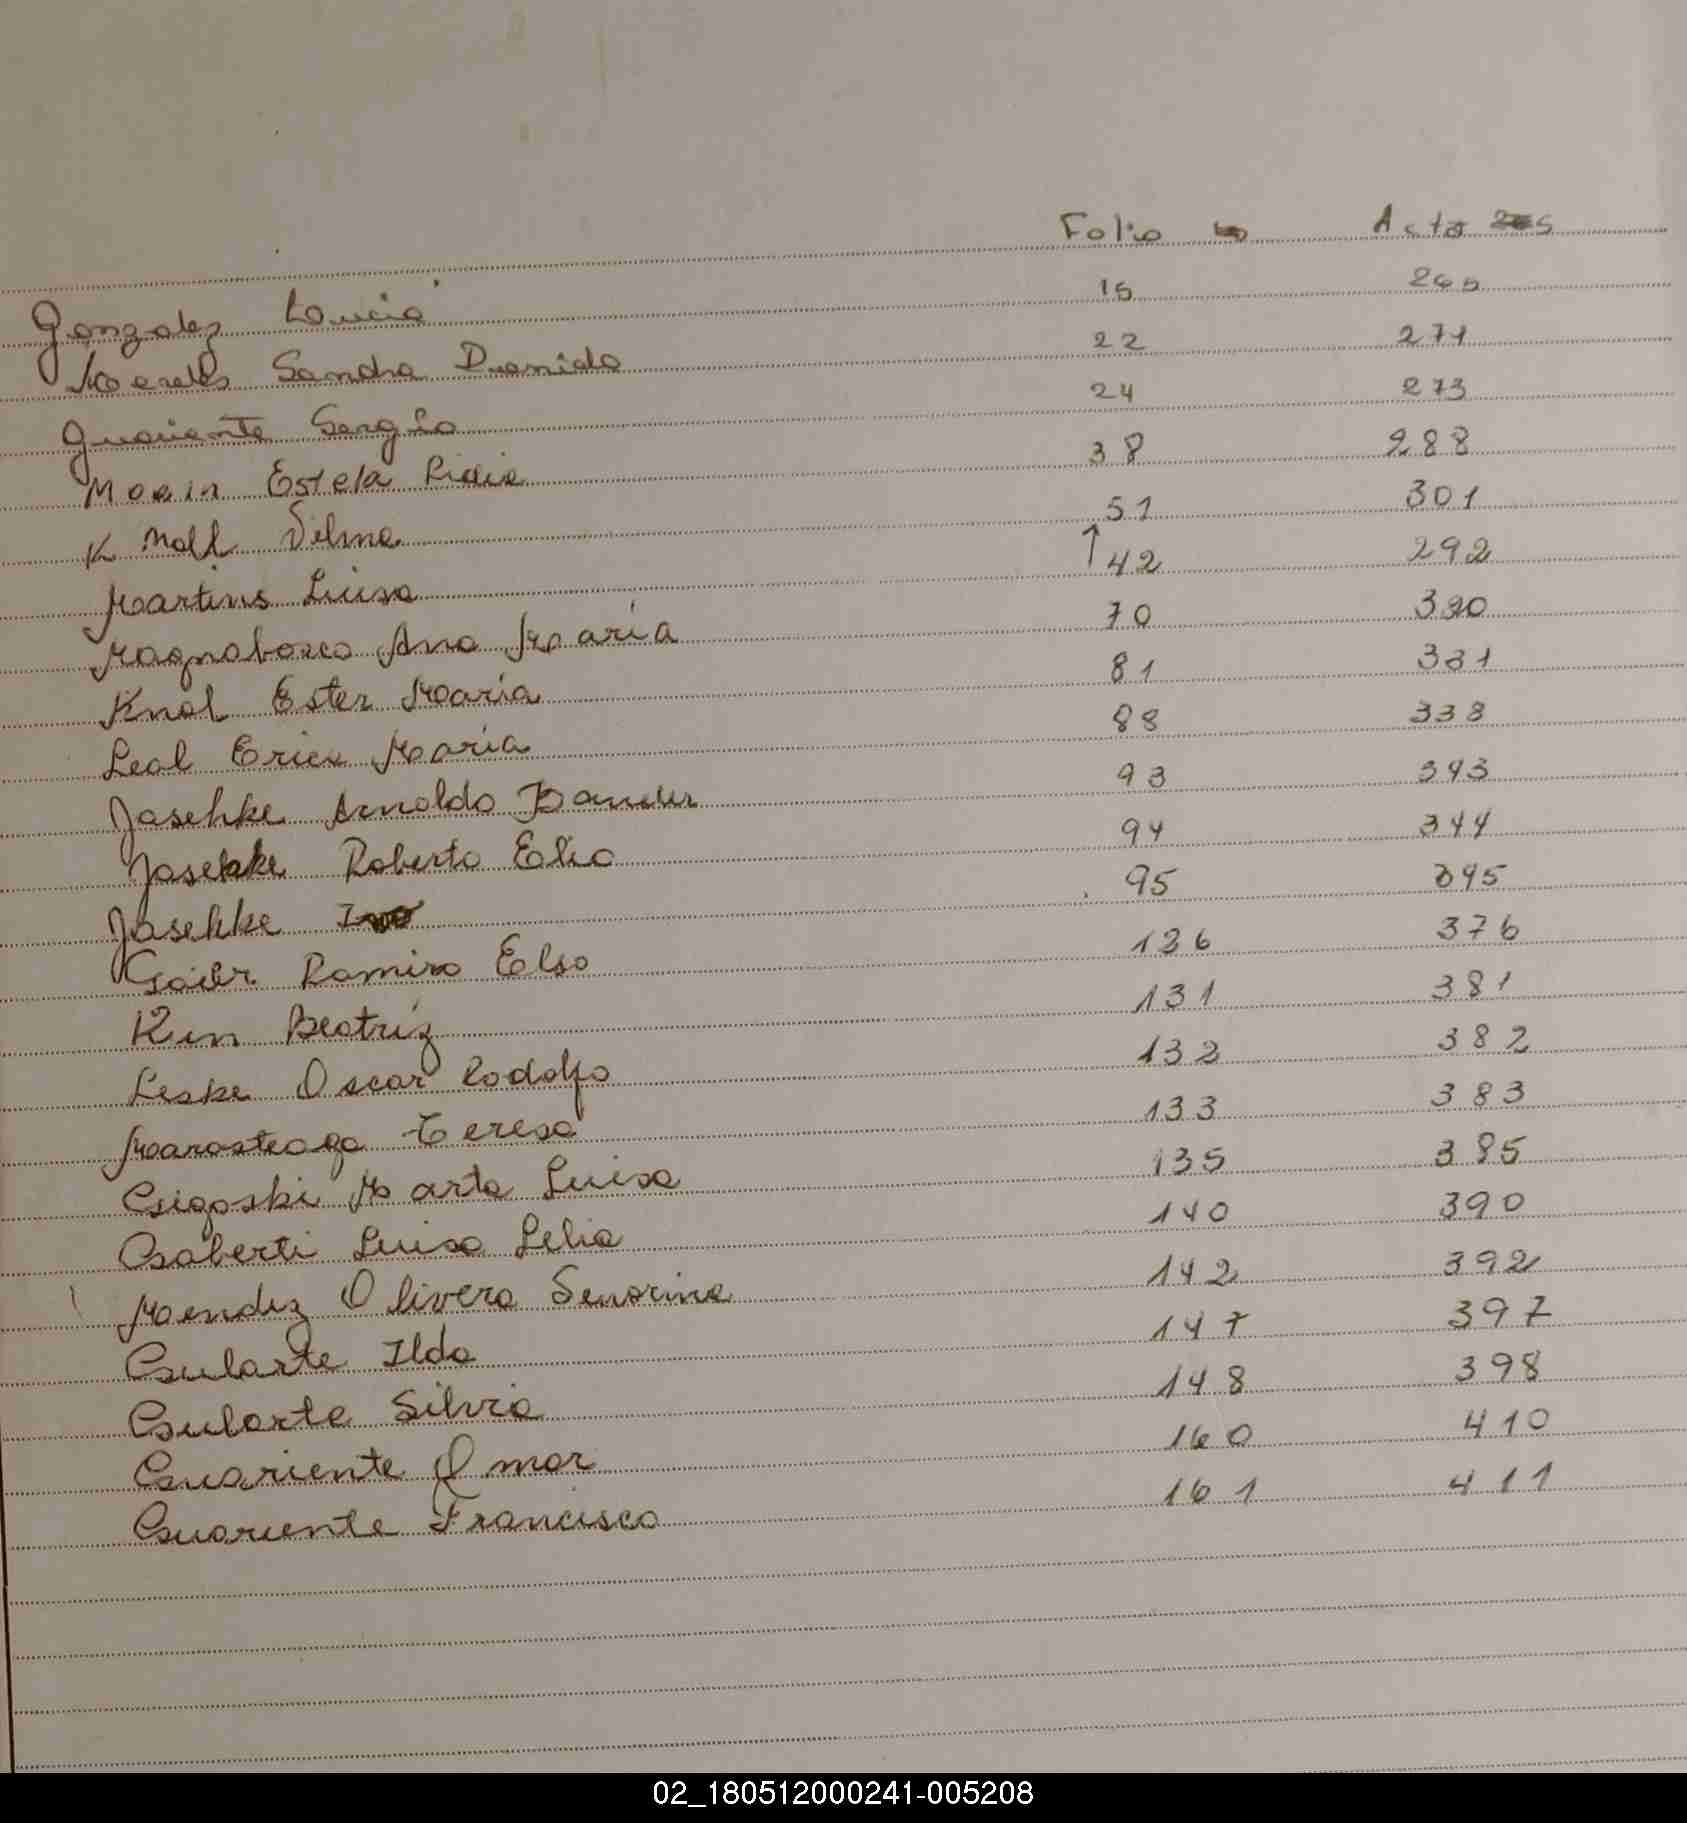 Folio Acta
Gonzalez Lucia 15 265
Mereles Sandra Dramida 22 271
Guariente Sergio 24 273
Moein Estela Lidia 38 288
Knoll Vilma 51 301
Martins Luisa ↑ 42 292
Magnabosco Ana Maria 70 320
Knol Ester Maria 81 331
Leal Erica Maria 88 338
Jasehke Arnoldo 93 343
Jasehke Roberto Elio 94 344
Jasehke 95 345
Ramiro Elso 126 376
Kin Beatriz 131 381
Leske Oscar Rodolfo 132 382
Marasteaga Teresa 133 383
Gsigoski Marta Luisa 135 385
Gsaberti Luisa Lelia 140 390
Mendez Olivera Senorina 142 392
Gularte Ilda 147 397
Gularte Silvia 148 398
Guariente Omar 160 410
Guariente Francisco 161 411
02_180512000241-005208